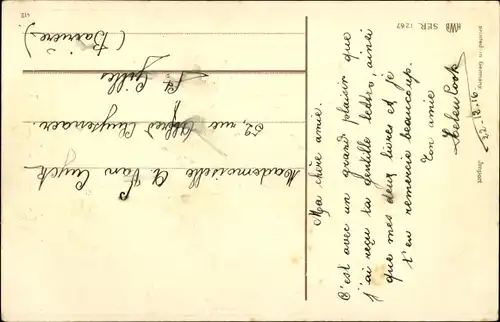 HWB SER. 1267
Printed in Germany
Import
412
22-12-16
Ma chère amie.
C'est avec un grand plaisir que
j'ai reçu ta gentille lettre, ainsi
que mes deux livres et je
t'en remercie beaucoup.
Ton amie
Helen Cook
Mademoiselle A. Van Cuyck
52, rue Alfred Cluysenaer.
St. Gilles
(Barrière)